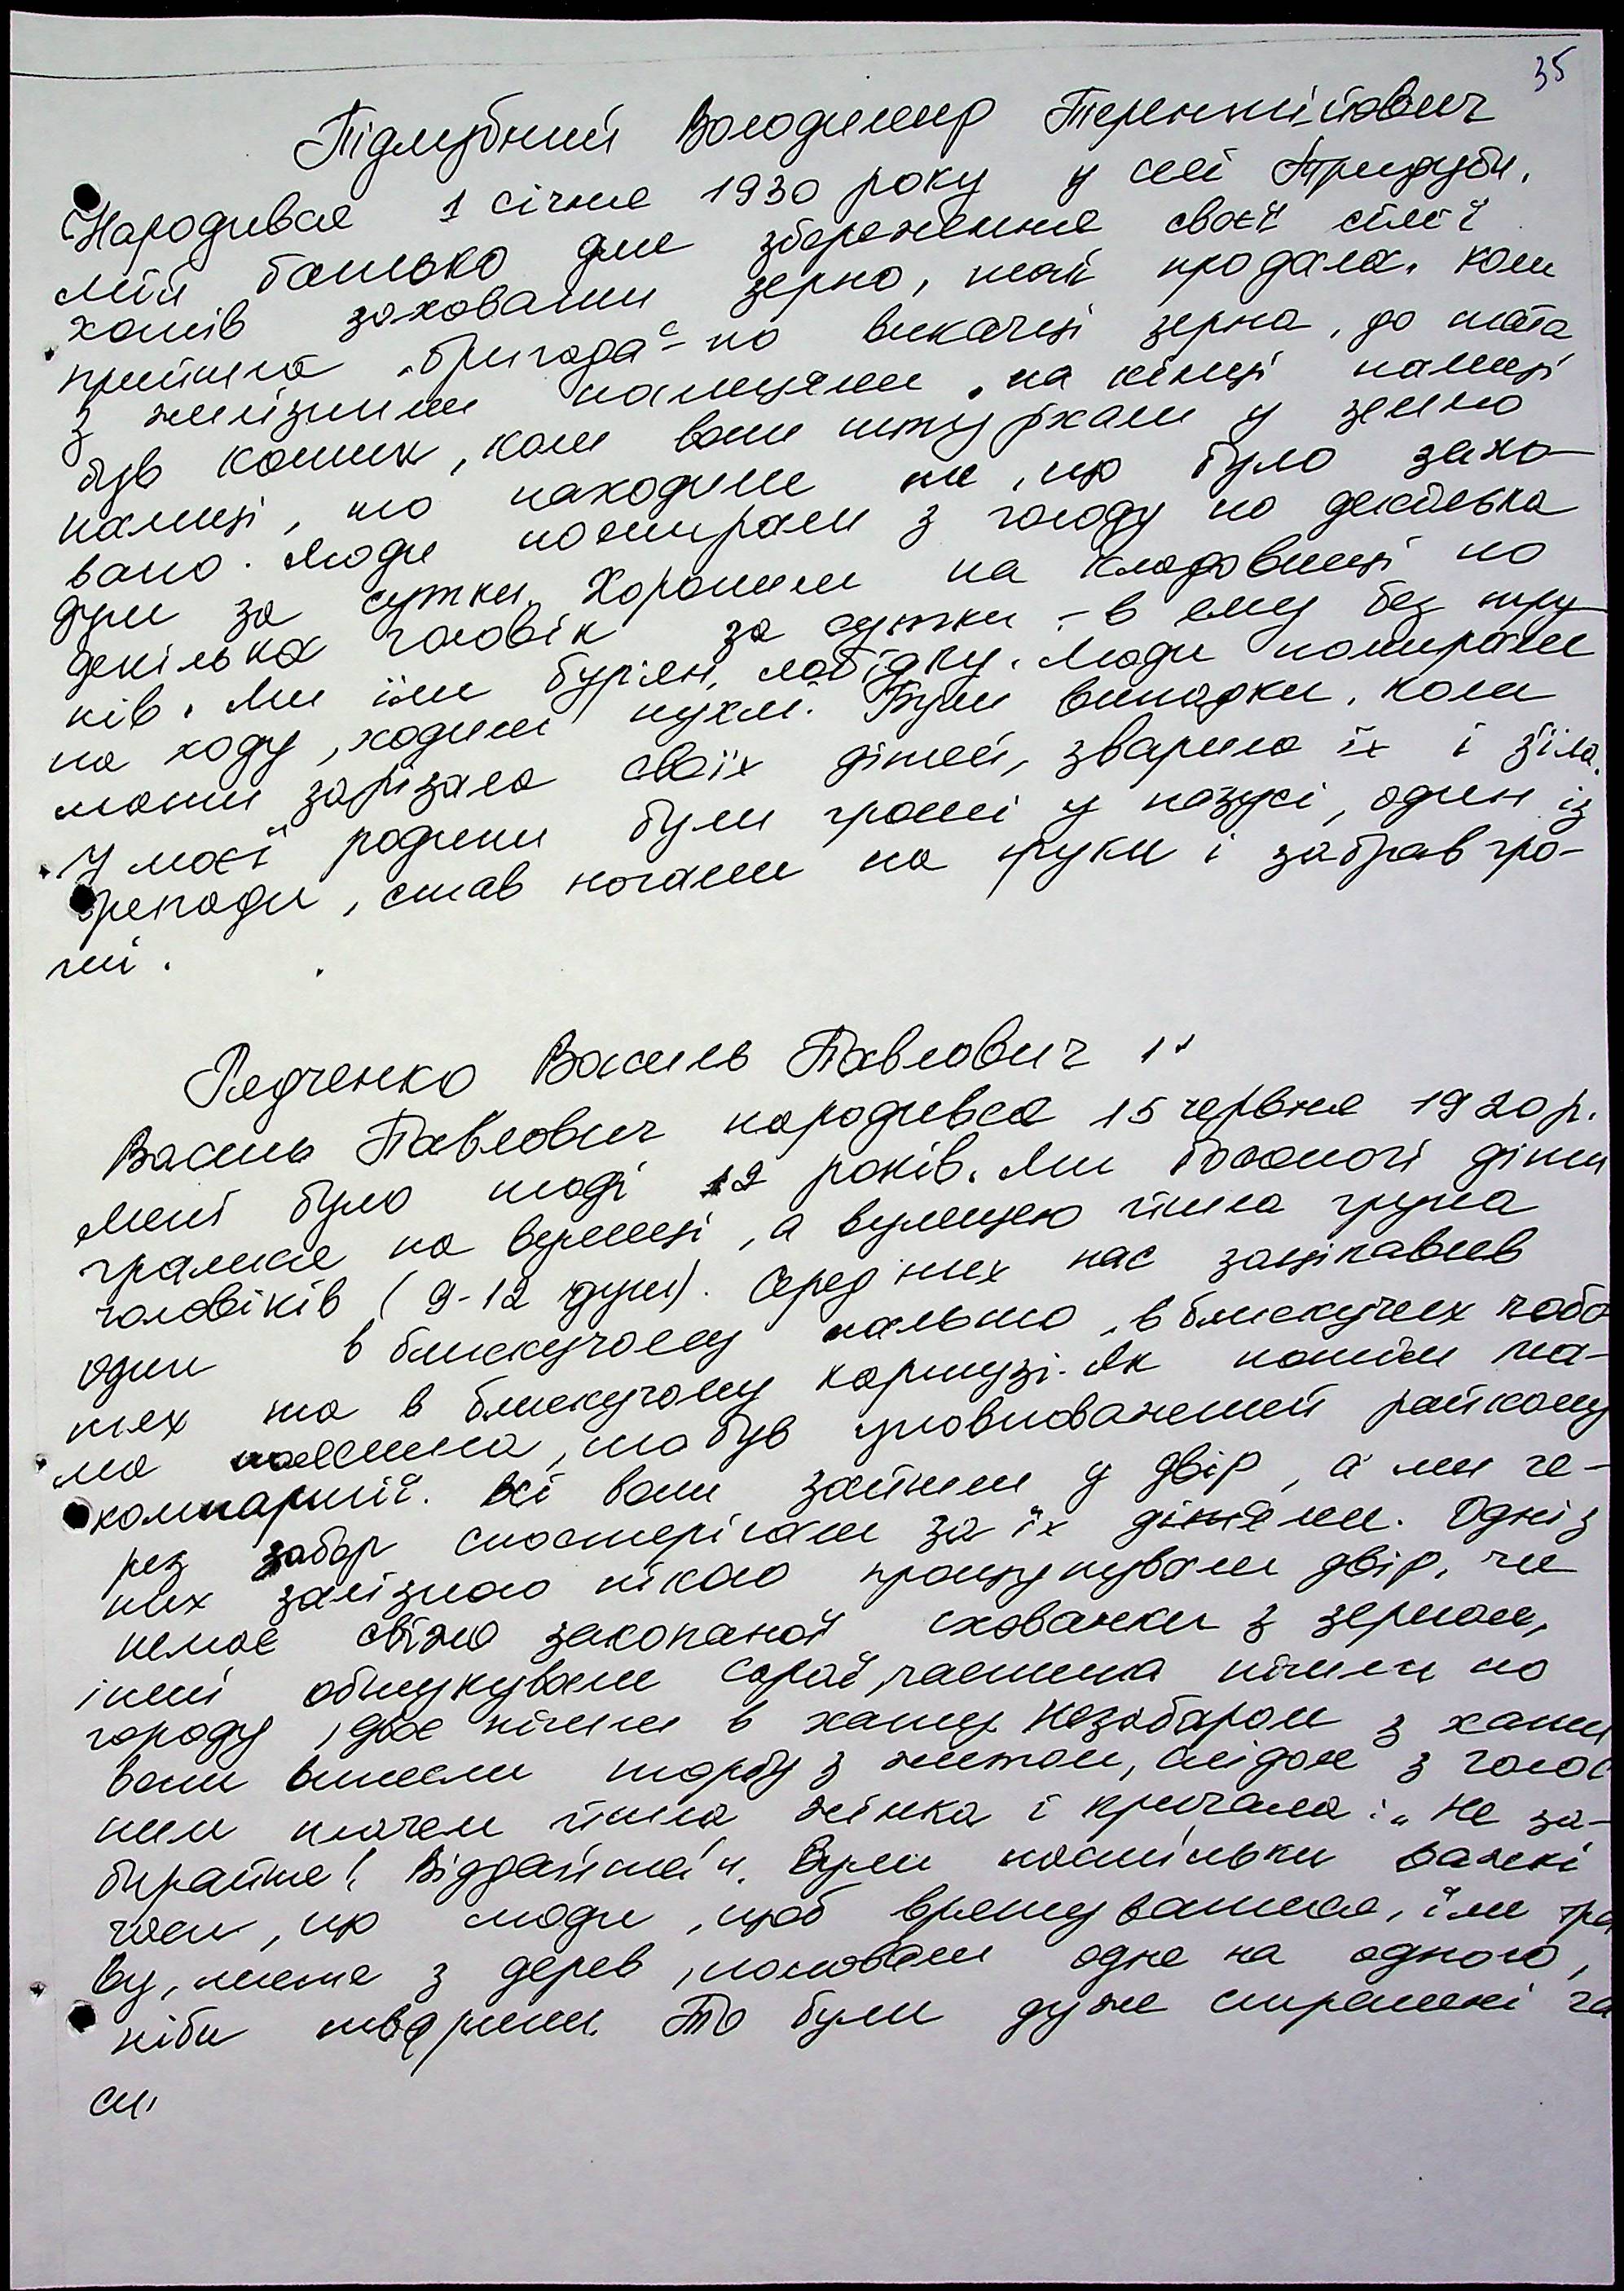 35
Підлубний Володимир Терентійович
Народився 1 січня 1930 року у селі Тридуби.
Мій батько для збереження своєї сім'ї
хотів заховати зерно, та й продала. Коли
прийшла „бригада" по викачці зерна, до тата
з залізними палицями, на кінці палиці
був кошик, коли вони штурхали у землю
палиці, то находили те, що було захо-
вано. Люди помирали з голоду по декілька
душ за сутки. Хоронили на кладовищі по
декілька чоловік за сутки – в яму без тру-
нів. Ми їли бур'ян, лободу. Люди помирали
на ходу, ходили пухлі. Були випадки, коли
мати зарізала своїх дітей, зварила їх і з'їла.
У моєї родини були гроші у пазусі, один із
бригади, став ногами на руки і забрав гро-
ші.
Редченко Василь Павлович
Василь Павлович народився 15 червня 1920 р.
Мені було тоді 12 років. Ми босоногі діти
гралися на вулиці, а вулицею йшла група
чоловіків (9-12 душ). Серед них нас зацікавив
один в блискучому пальто, в блискучих чобо
тях та в блискучому картузі. Як потім ма-
ма пояснила, то був уповноважений райкому
компартії. Всі вони зайшли у двір, а ми че-
рез забор спостерігали за їх діями. Одні з
них залізною пікою прощупували двір, чи
немає свіжо закопаної схованки з зерном,
інші обшукували сараї, частина пішли по
городу, двоє пішли в хату. Незабаром з хати
вони винесли торбу з житом, слідом з голос
ним плачем йшла жінка і кричала: „Не за-
бирайте! Віддайте!". Були настільки важкі
часи, що люди, щоб врятуватися, їли тра
ву, листя з дерев, полювали одне на одного,
ніби тварини. То були дуже страшні ча
си.